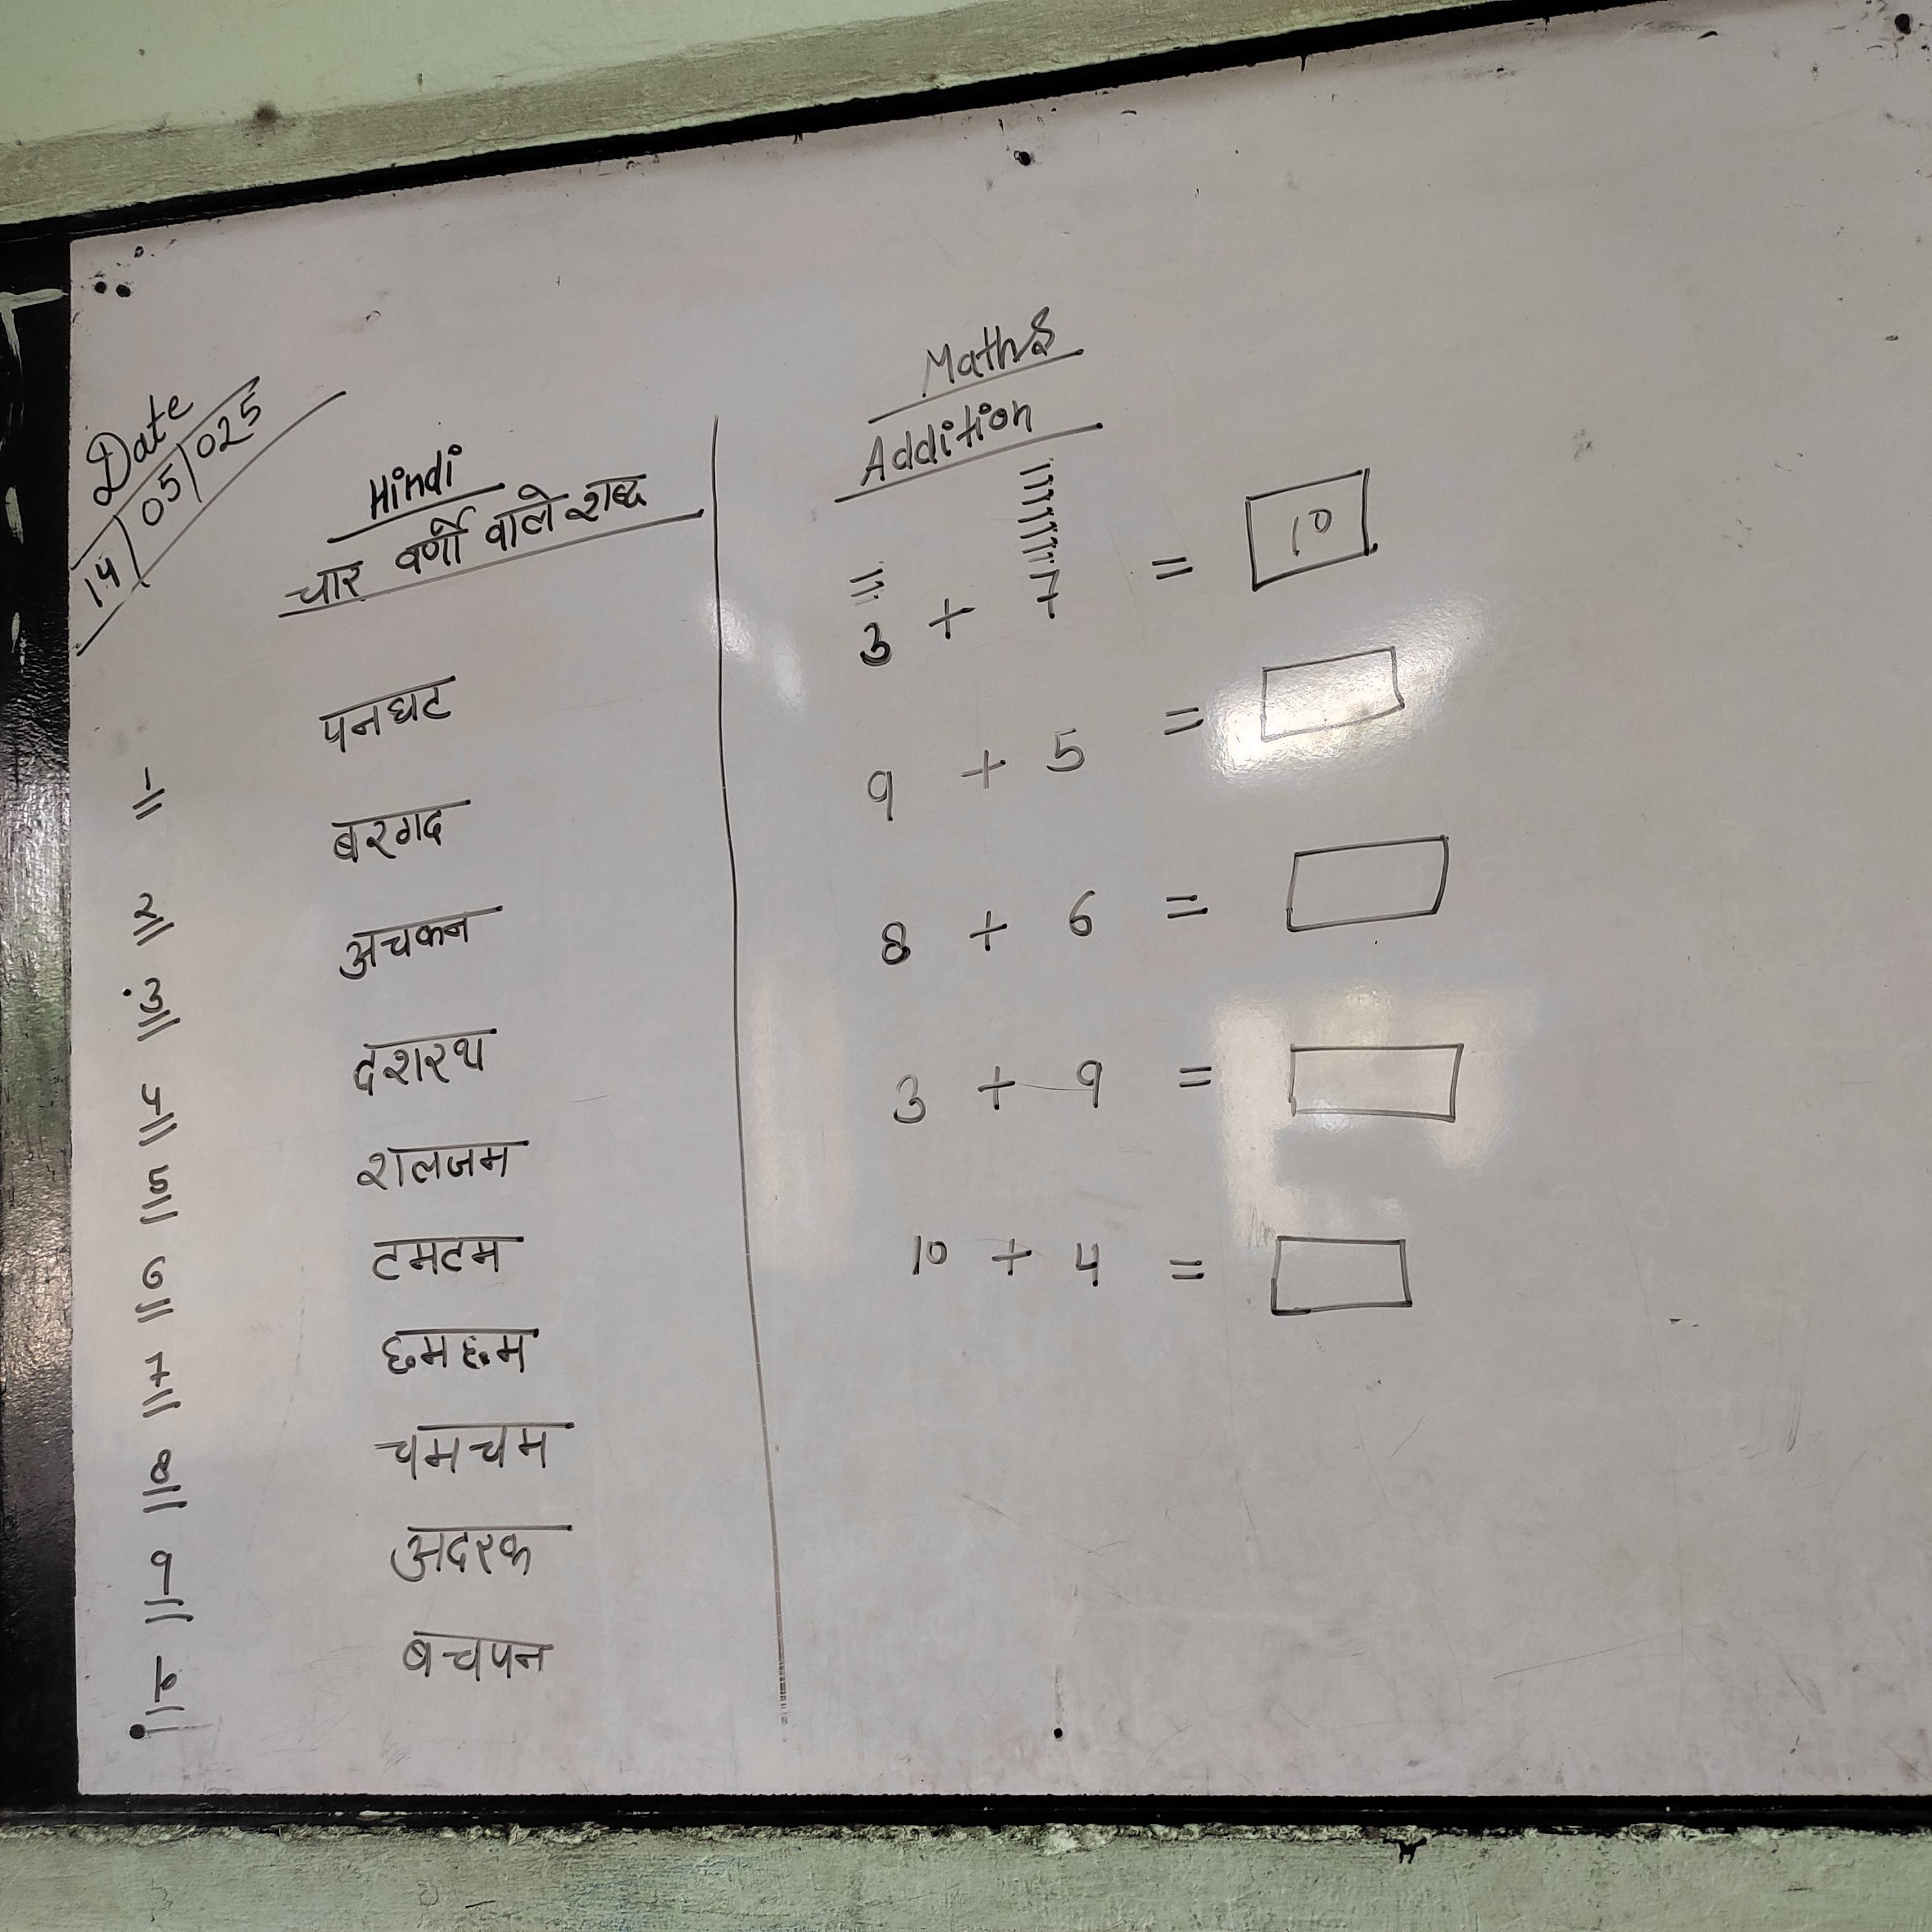 Date
14/05/025
Hindi
चार वर्णो वाले शब्द
1 पनघट
2 बरगद
3 अचकन
4 दशरथ
5 शलजम
6 टमटम
7 छमछम
8 चमचम
9 अदरक
10 बचपन
Maths
Addition
3 + 7 = 10
9 + 5 =
8 + 6 =
3 + 9 =
10 + 4 =